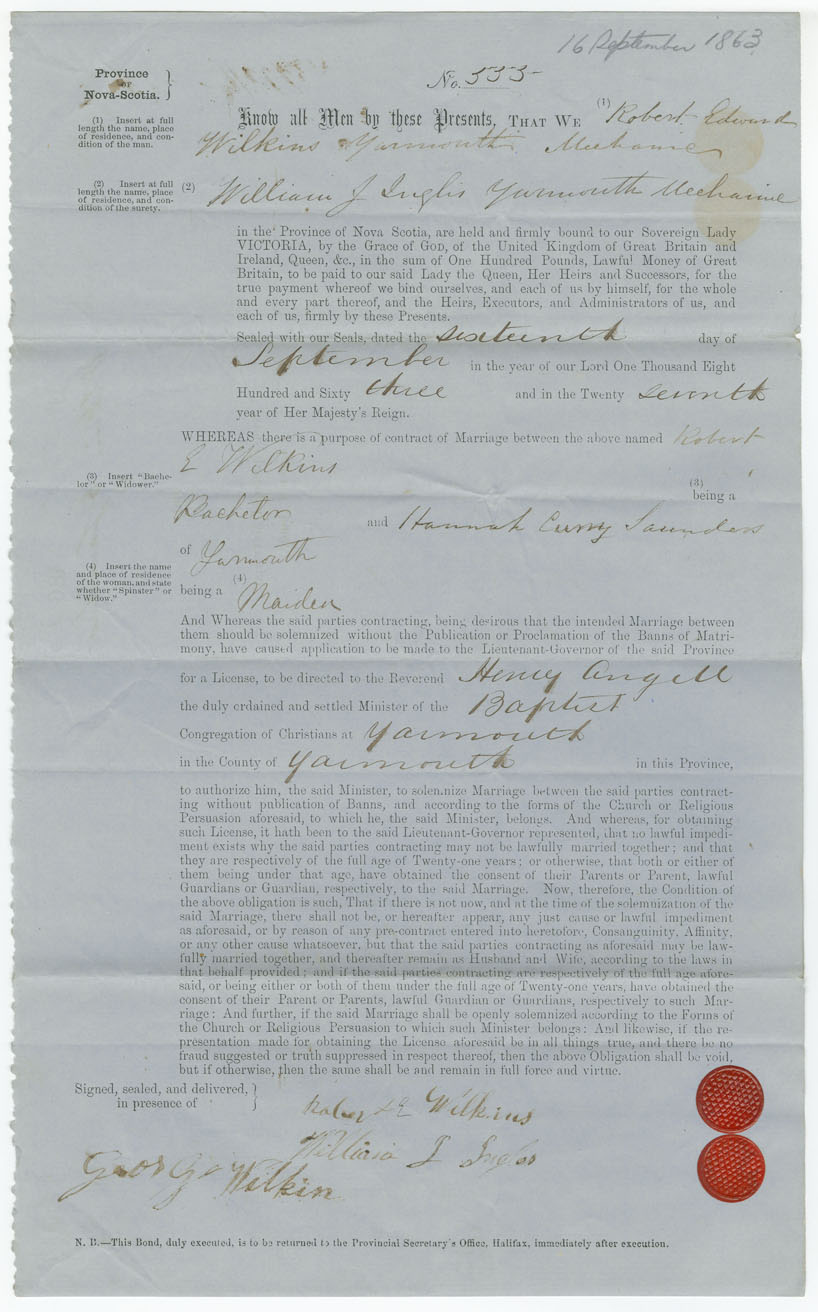 16 September 1863
Province
OF
Nova-Scotia.
No. 333
(1) Insert at full
length the name, place
of residence, and con-
dition of the man.
Know all Men by these Presents, THAT WE (1) Robert Edward
Wilkins Yarmouth Mechanic
(2) Insert at full
length the name, place
of residence, and con-
dition of the surety.
(2) William J Inglis Yarmouth Mechanic
in the Province of Nova Scotia, are held and firmly bound to our Sovereign Lady
VICTORIA, by the Grace of GOD, of the United Kingdom of Great Britain and
Ireland, Queen, &c., in the sum of One Hundred Pounds, Lawful Money of Great
Britain, to be paid to our said Lady the Queen, Her Heirs and Successors, for the
true payment whereof we bind ourselves, and each of us by himself, for the whole
and every part thereof, and the Heirs, Executors, and Administrators of us, and
each of us, firmly by these Presents.
Sealed with our Seals, dated the sixteenth day of
September in the year of our Lord One Thousand Eight
Hundred and Sixty three and in the Twenty seventh
year of Her Majesty's Reign.
WHEREAS there is a purpose of contract of Marriage between the above named Robert
E Wilkins
(3) Insert "Bache-
lor" or "Widower."
(3)
being a
Bachelor and Hannah Curry Saunders
of Yarmouth
(4) Insert the name
and place of residence
of the woman, and state
whether "Spinster" or
"Widow."
(4)
being a Maiden
And Whereas the said parties contracting, being desirous that the intended Marriage between
them should be solemnized without the Publication or Proclamation of the Banns of Matri-
mony, have caused application to be made to the Lieutenant-Governor of the said Province
for a License, to be directed to the Reverend Henry Angell
the duly ordained and settled Minister of the Baptist
Congregation of Christians at Yarmouth
in the County of Yarmouth in this Province,
to authorize him, the said Minister, to solemnize Marriage between the said parties contract-
ing without publication of Banns, and according to the forms of the Church or Religious
Persuasion aforesaid, to which he, the said Minister, belongs. And whereas, for obtaining
such License, it hath been to the said Lieutenant-Governor represented, that no lawful impedi-
ment exists why the said parties contracting may not be lawfully married together; and that
they are respectively of the full age of Twenty-one years; or otherwise, that both or either of
them being under that age, have obtained the consent of their Parents or Parent, lawful
Guardians or Guardian, respectively, to the said Marriage. Now, therefore, the Condition of
the above obligation is such, That if there is not now, and at the time of the solemnization of the
said Marriage, there shall not be, or hereafter appear, any just cause or lawful impediment
as aforesaid, or by reason of any pre-contract entered into heretofore, Consanguinity, Affinity,
or any other cause whatsoever, but that the said parties contracting as aforesaid may be law-
fully married together, and thereafter remain as Husband and Wife, according to the laws in
that behalf provided; and if the said parties contracting are respectively of the full age afore-
said, or being either or both of them under the full age of Twenty-one years, have obtained the
consent of their Parent or Parents, lawful Guardian or Guardians, respectively to such Mar-
riage: And further, if the said Marriage shall be openly solemnized according to the Forms of
the Church or Religious Persuasion to which such Minister belongs: And likewise, if the re-
presentation made for obtaining the License aforesaid be in all things true, and there be no
fraud suggested or truth suppressed in respect thereof, then the above Obligation shall be void,
but if otherwise, then the same shall be and remain in full force and virtue.
Signed, sealed, and delivered,
in presence of
Robert E Wilkins
William J Inglis
George Wilkin
N. B.—This Bond, duly executed, is to be returned to the Provincial Secretary's Office, Halifax, immediately after execution.